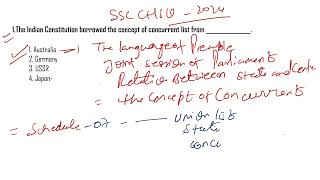 SSC CHSL - 2024
1.The Indian Constitution borrowed the concept of concurrent list from ____________.
1. Australia
2. Germany
3. USSR
4. Japan-
) The language of Preamble
Joint session of Parliaments
Relation Between State and Center
= the Concept of Concurrent
= Schedule - 07 - Union list
State
conc